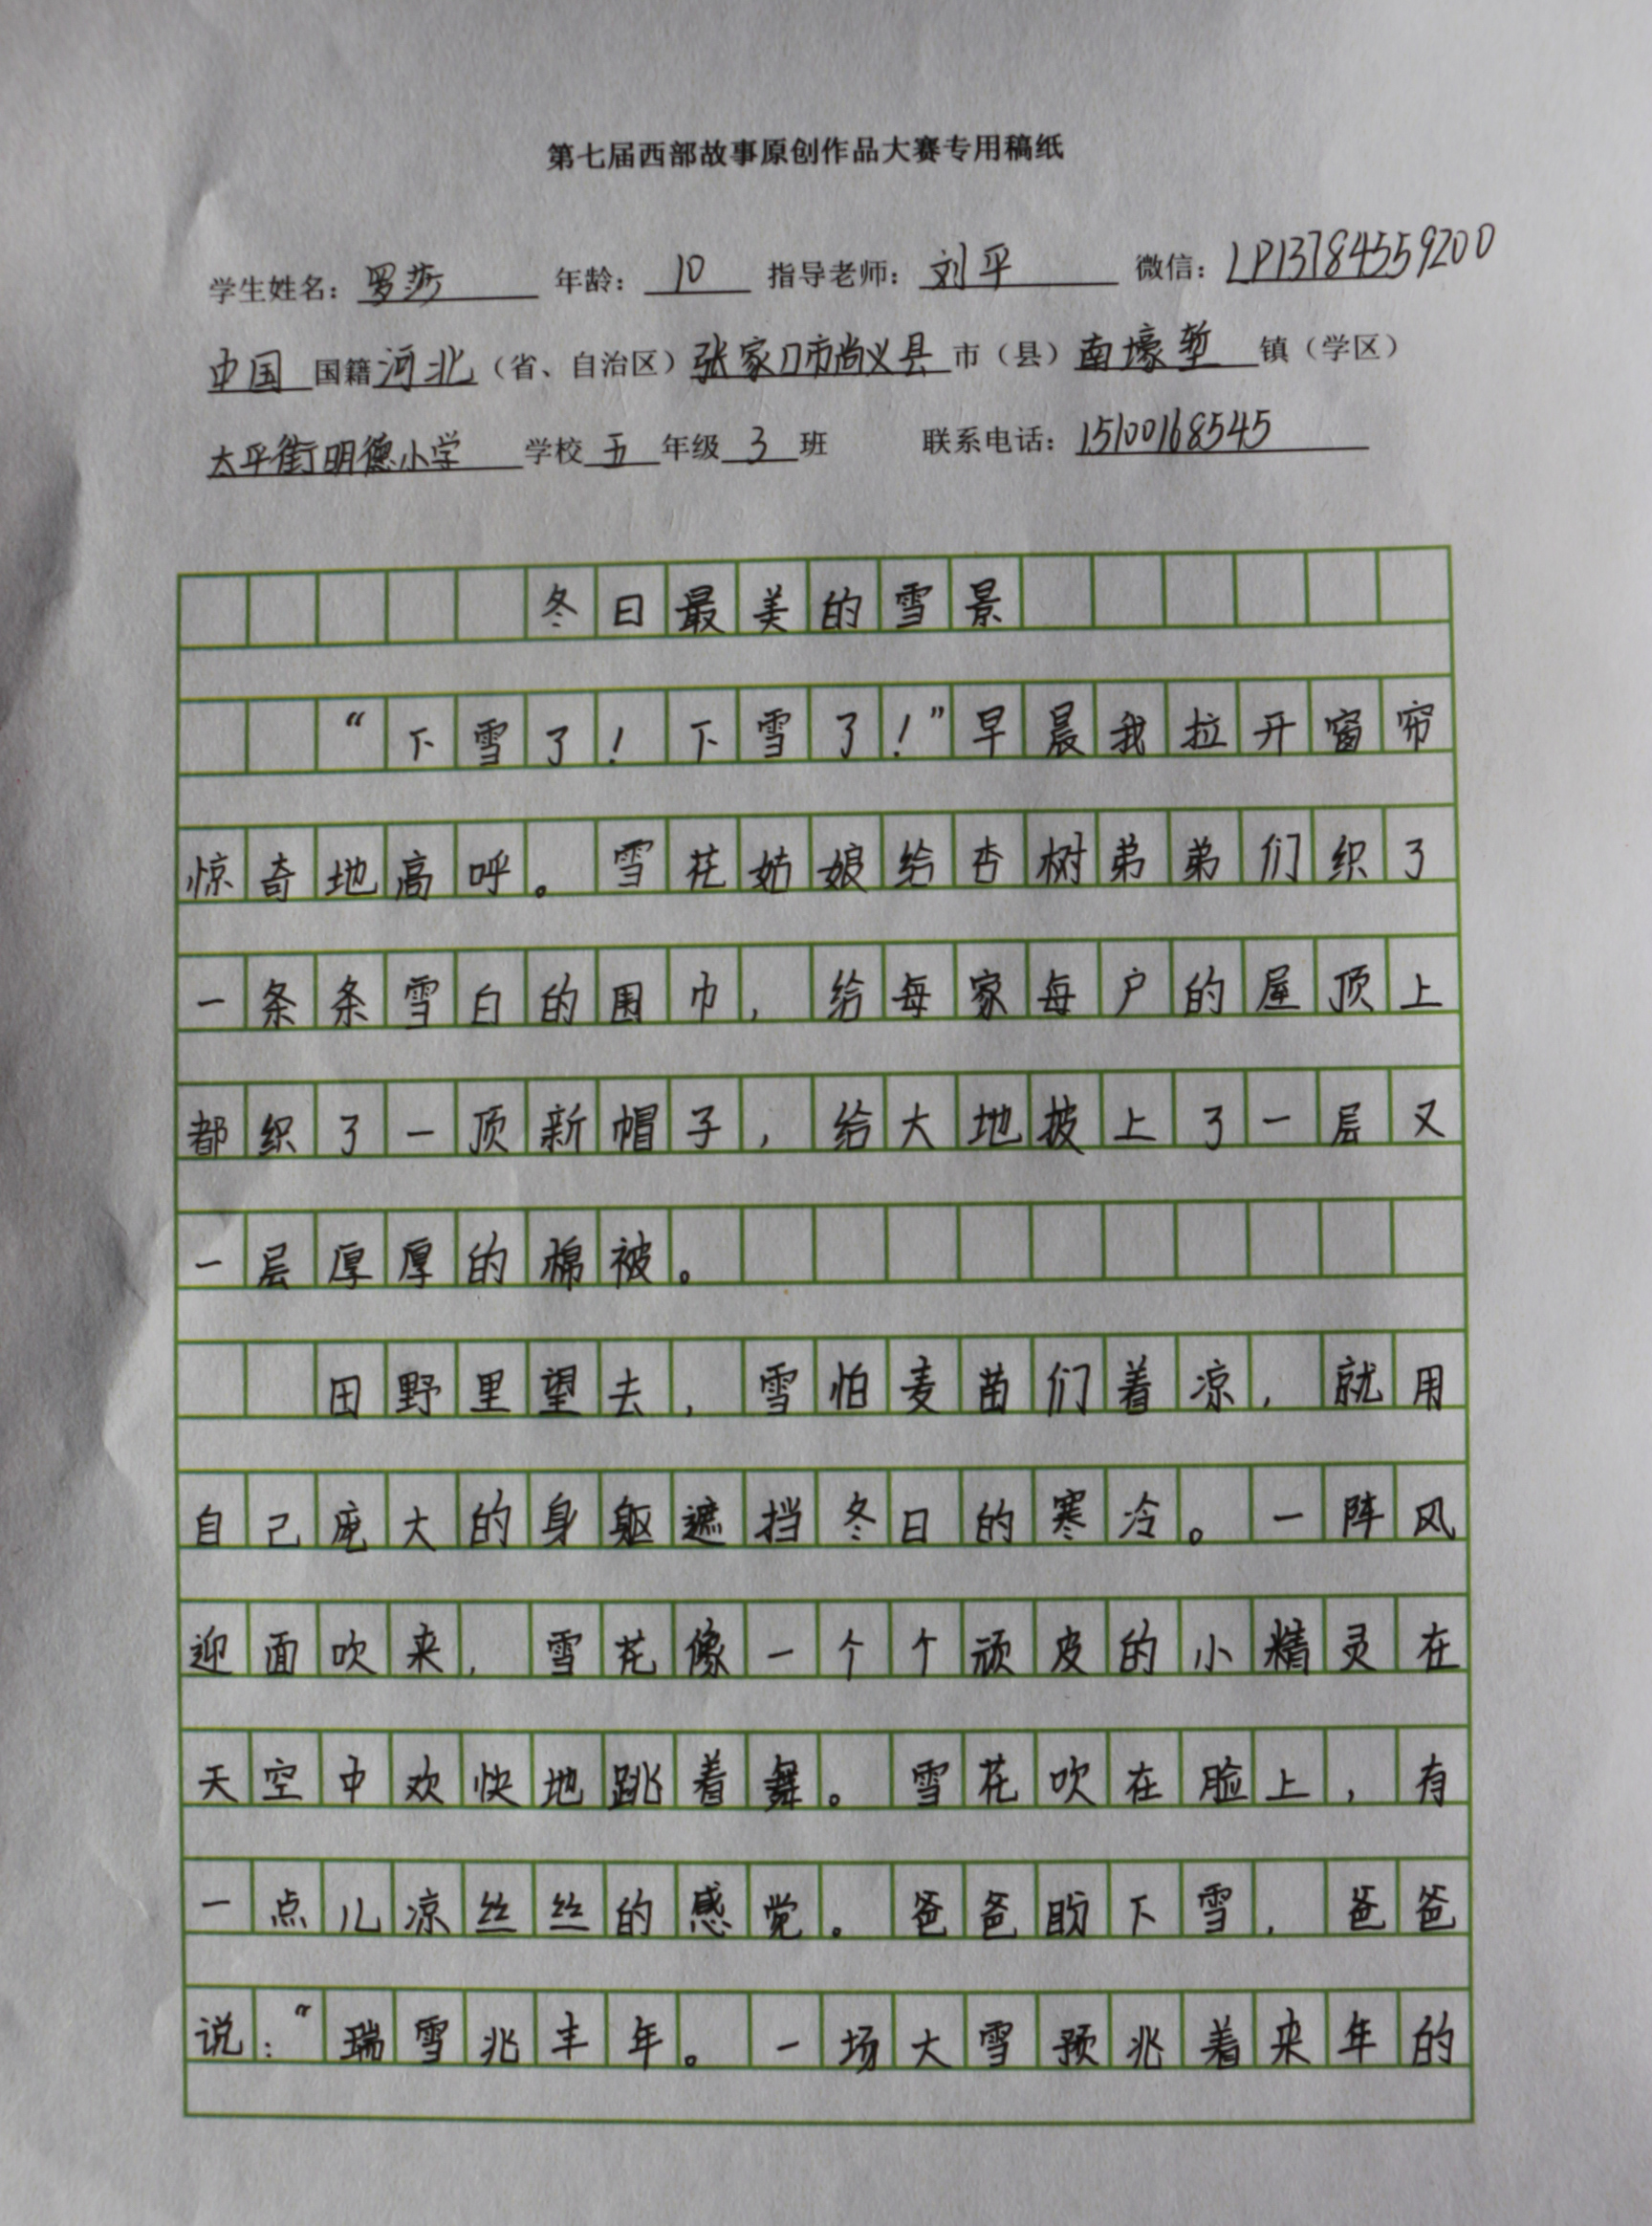 第七届西部故事原创作品大赛专用稿纸
学生姓名：罗莎 年龄：10 指导老师：刘平 微信：LP13784559200
中国国籍河北（省、自治区）张家口市尚义县市（县）南壕堑镇（学区）
太平街明德小学学校五年级3班 联系电话：15100168545
冬日最美的雪景
“下雪了！下雪了！”早晨我拉开窗帘
惊奇地高呼。雪花姑娘给杏树弟弟们织了
一条条雪白的围巾，给每家每户的屋顶上
都织了一顶新帽子，给大地披上了一层又
一层厚厚的棉被。
田野里望去，雪怕麦苗们着凉，就用
自己庞大的身躯遮挡冬日的寒冷。一阵风
迎面吹来，雪花像一个个顽皮的小精灵在
天空中欢快地跳着舞。雪花吹在脸上，有
一点儿凉丝丝的感觉。爸爸盼下雪，爸爸
说：“瑞雪兆丰年。一场大雪预兆着来年的